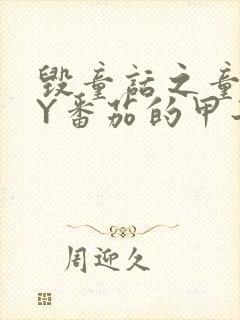 毁童话之童
Y番茄的甲
周迎久